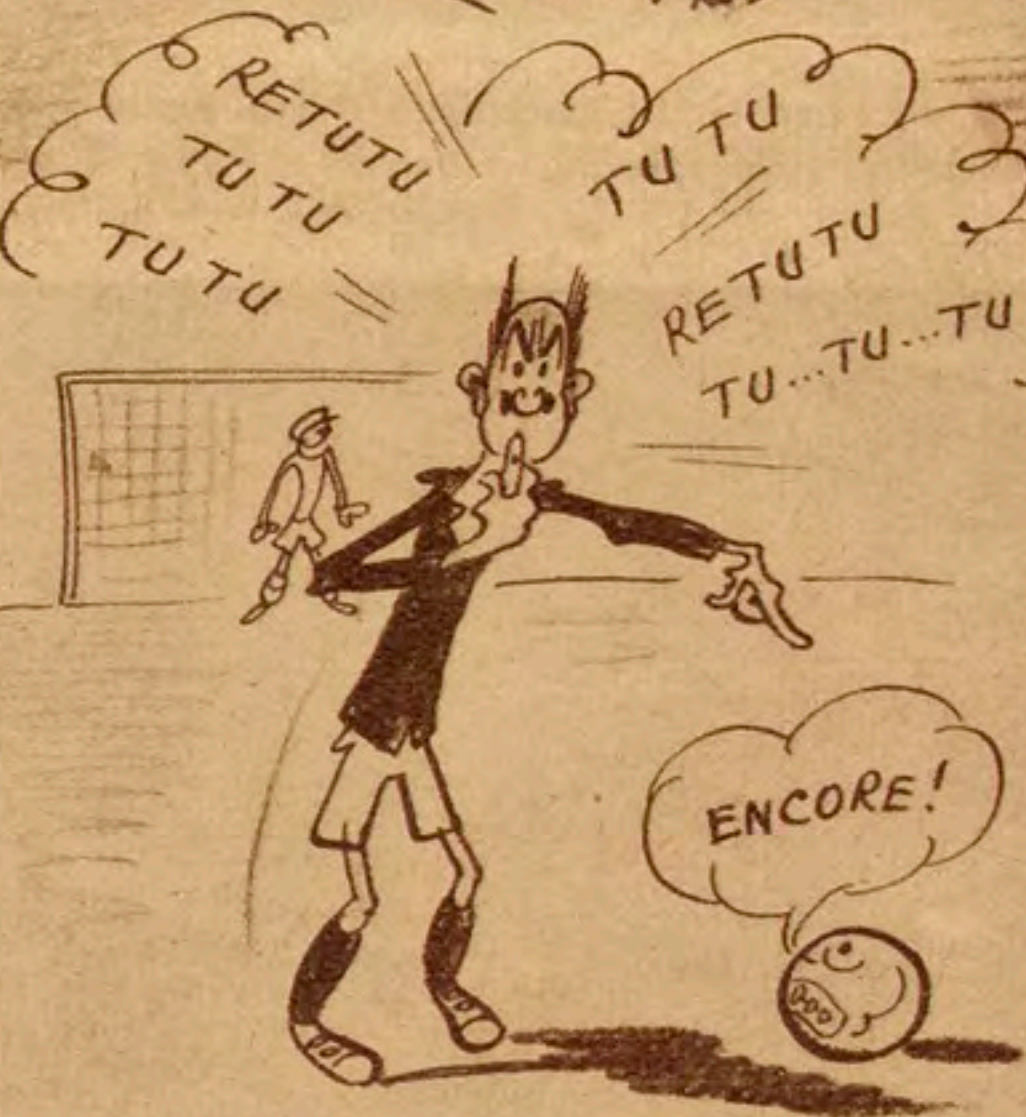 RETUTU
TU TU
TU TU
TU TU
RETUTU
TU...TU...TU
ENCORE!